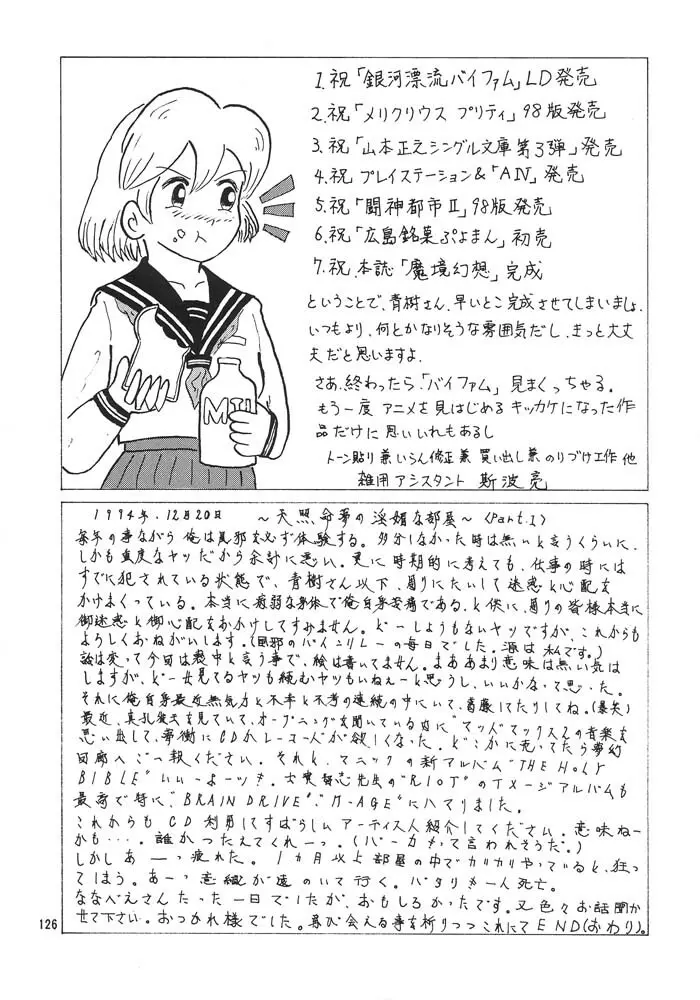 1.祝「銀河漂流バイファム」LD発売
2.祝「メリクリウス プリティ」98版発売
3.祝「山本正之シングル文庫第3弾」発売
4.祝 プレイステーション&「AIV」発売
5.祝「闘神都市II」98版発売
6.祝「広島銘菓ぷよまん」初売
7.祝.本誌「魔境幻想」完成
ということで、青樹さん、早いとこ完成させてしまいましょ、
いつもより、何とかなりそうな雰囲気だし、きっと大丈
夫だと思いますよ.
さあ、終わったら、「バイファム」見まくっちゃる。
もう一度 アニメを見はじめる キッカケになった作
品だけに 思いいれもあるし
トーン貼り 兼 いらん修正 兼 買い出し 兼 のりづけ工作 他
雑用アシスタント 斯波 亮
MIL
1994年.12月20日 〜天照命夢の淫媚な部屋〜 〈Part.1〉
毎年の事ながら俺は風邪を必ず体験する。多分しなかった時は無いと言うくらいに、
しかも重度なヤツだから余計に悪い。更に時期的に考えても、仕事の時には
すでに犯されている状態で、青樹さん以下、周りにたいして迷惑と心配を
かけまくっている。本当に病弱な身体で俺自身苦痛である、と供に、周りの皆様本当に
御迷惑と御心配をおかけしてすみません。どーしようもないヤツですが、これからも
よろしくおねがいします。(風邪のバイキンリレーの毎日でした。源は私です。)
話は変って今回は喪中と言う事で、絵は書いてません。まああまり意味は無い気は
しますが、ど一せ見るヤツも読むヤツもいねぇーと思うし、いいかなって思った。
それに俺自身最近無気力と不幸と不考の連続の中にいて、葛藤してたりしてね。(爆笑)
最近、真孔雀王を見ていて、オープニングを聞いている内に"マッドマックス2の音楽を
思い出して、夢衝にCDかレコー一人が欲しくなった。どこかに売ってたら夢幻
回廊へご一報ください。それと、マニックの新アルバム"THE HOLY
BIBLE"いいーよーッす。士貴智志先生の"RIOT"のイメージアルバムも
最高で特に"BRAIN DRIVE"、"M-AGE"にハマりました。
これからも CD 利用してすばらしいアーティスト紹介してください。意味ねー
かも…. 誰かつたえてくれーっ。(バーカもって言われそうだ。)
しかしあーーっ疲れた。1カ月以上部屋の中でカリカリやっていると、狂っ
てしまう。あーっ意識が遠のいて行く。バタリも一人死亡。
ななべえさんたった一日でしたが、おもしろかったです。又色々お話聞か
せて下さい。おつかれ様でした。再び会える事を祈りつつこれにて END(おわり)。
126